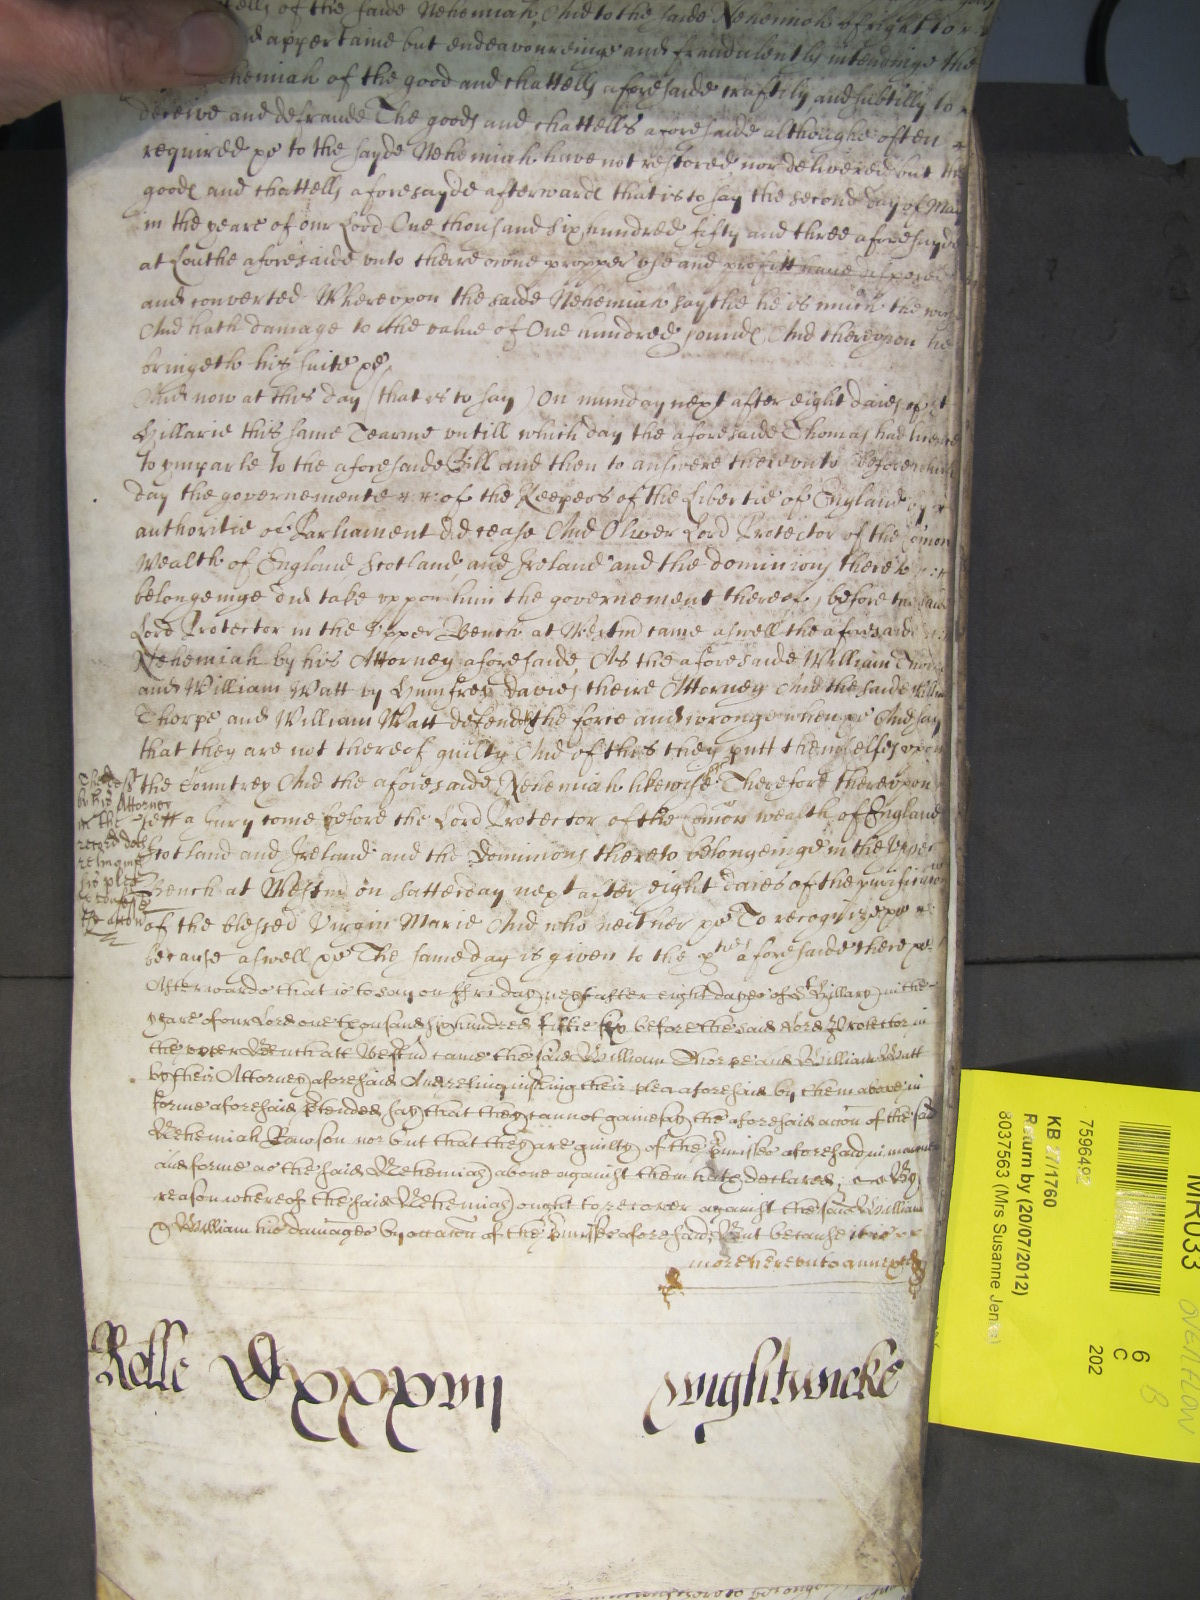 of the saide Nehemiah And to the saide Nehemiah of right
appertaine but endeavoureinge and fraudulently intendinge the
Nehemiah of the good and chattells aforesaide craftily and subtilly to
deceive and defraude The goods and chattells aforesaide althoughe often
required &c to the sayde Nehemiah have not restored nor delivered but the
goods and chattells aforesayde afterwards that is to say the second day of May
in the yeare of our Lord One thousand six hundred fifty and three aforesayde
at Louthe aforesaide unto theire owne propper use and profitt have disposed
and converted Whereupon the saide Nehemiah saythe he is much the
And hath damage to the value of One hundred pounds And thereupon he
bringeth his suite &c
And now at this day (that is to say) On munday next after eight daies of St
Hillarie this same Tearme untill which day the aforesaide Thomas had
to ymparle to the aforesaide Bill and then to answere thereunto before which
day the governemente of the Keepers of the Libertie of England by
authoritie of Parliament did cease And Oliver Lord Protector of the Comon
Wealth of England Scotland and Ireland and the dominions thereto
belongeinge did take uppon him the governement thereof, before the saide
Lord Protector in the Upper Bench at Westm came aswell the aforesaide
Nehemiah by his Attorney aforesaide, As the aforesaide William Thorpe
and William Watt by Humfrey Davies theire Attorney And the saide William
Thorpe and William Watt defend the force and wronge when &c And say
that they are not thereof guilty And of this they putt themselfes upon
the Countrey And the aforesaide Nehemiah likewise &c Therefore thereupon
lett a Jury come before the Lord Protector of the Comon wealth of England
Scotland and Ireland and the Dominions thereto belongeinge in the Upper
Bench at Westm on Satterday next after eight daies of the purification
of the blessed Virgin Marie And who neither &c To recognize &c
because aswell &c The same day is given to the pties aforesaide there &c
by his Attorney
in the
record doth
relinquish
his plea
& confesse
the action
Afterwards that is to say on Friday next after eight dayes of St Hillary in the
yeare of our Lord one thousand six hundred fiftie before the said Lord Protector in
the upper Bench att Westm came the said William Thorpe and William Watt
by their Attorney aforesaid And relinquishing their plea aforesaid by them above in
forme aforesaid pleaded say that they cannot gainesay the aforesaid acon of the said
Nehemiah Rawson nor but that they are guilty of the pmisses aforesaid in manner
and forme as the said Nehemiah above against them hath declared; By
reason whereof the said Nehemiah ought to recover against the said William
& William his damages by occasion of the pmisses aforesaid, But because it is
more hereunto annexed
Rolle Dxxxvii
Wightwicke
MR033
OVERFLOW
B
6
C
202
7596492
KB 27/1760
Return by (20/07/2012)
8037563 (Mrs Susanne